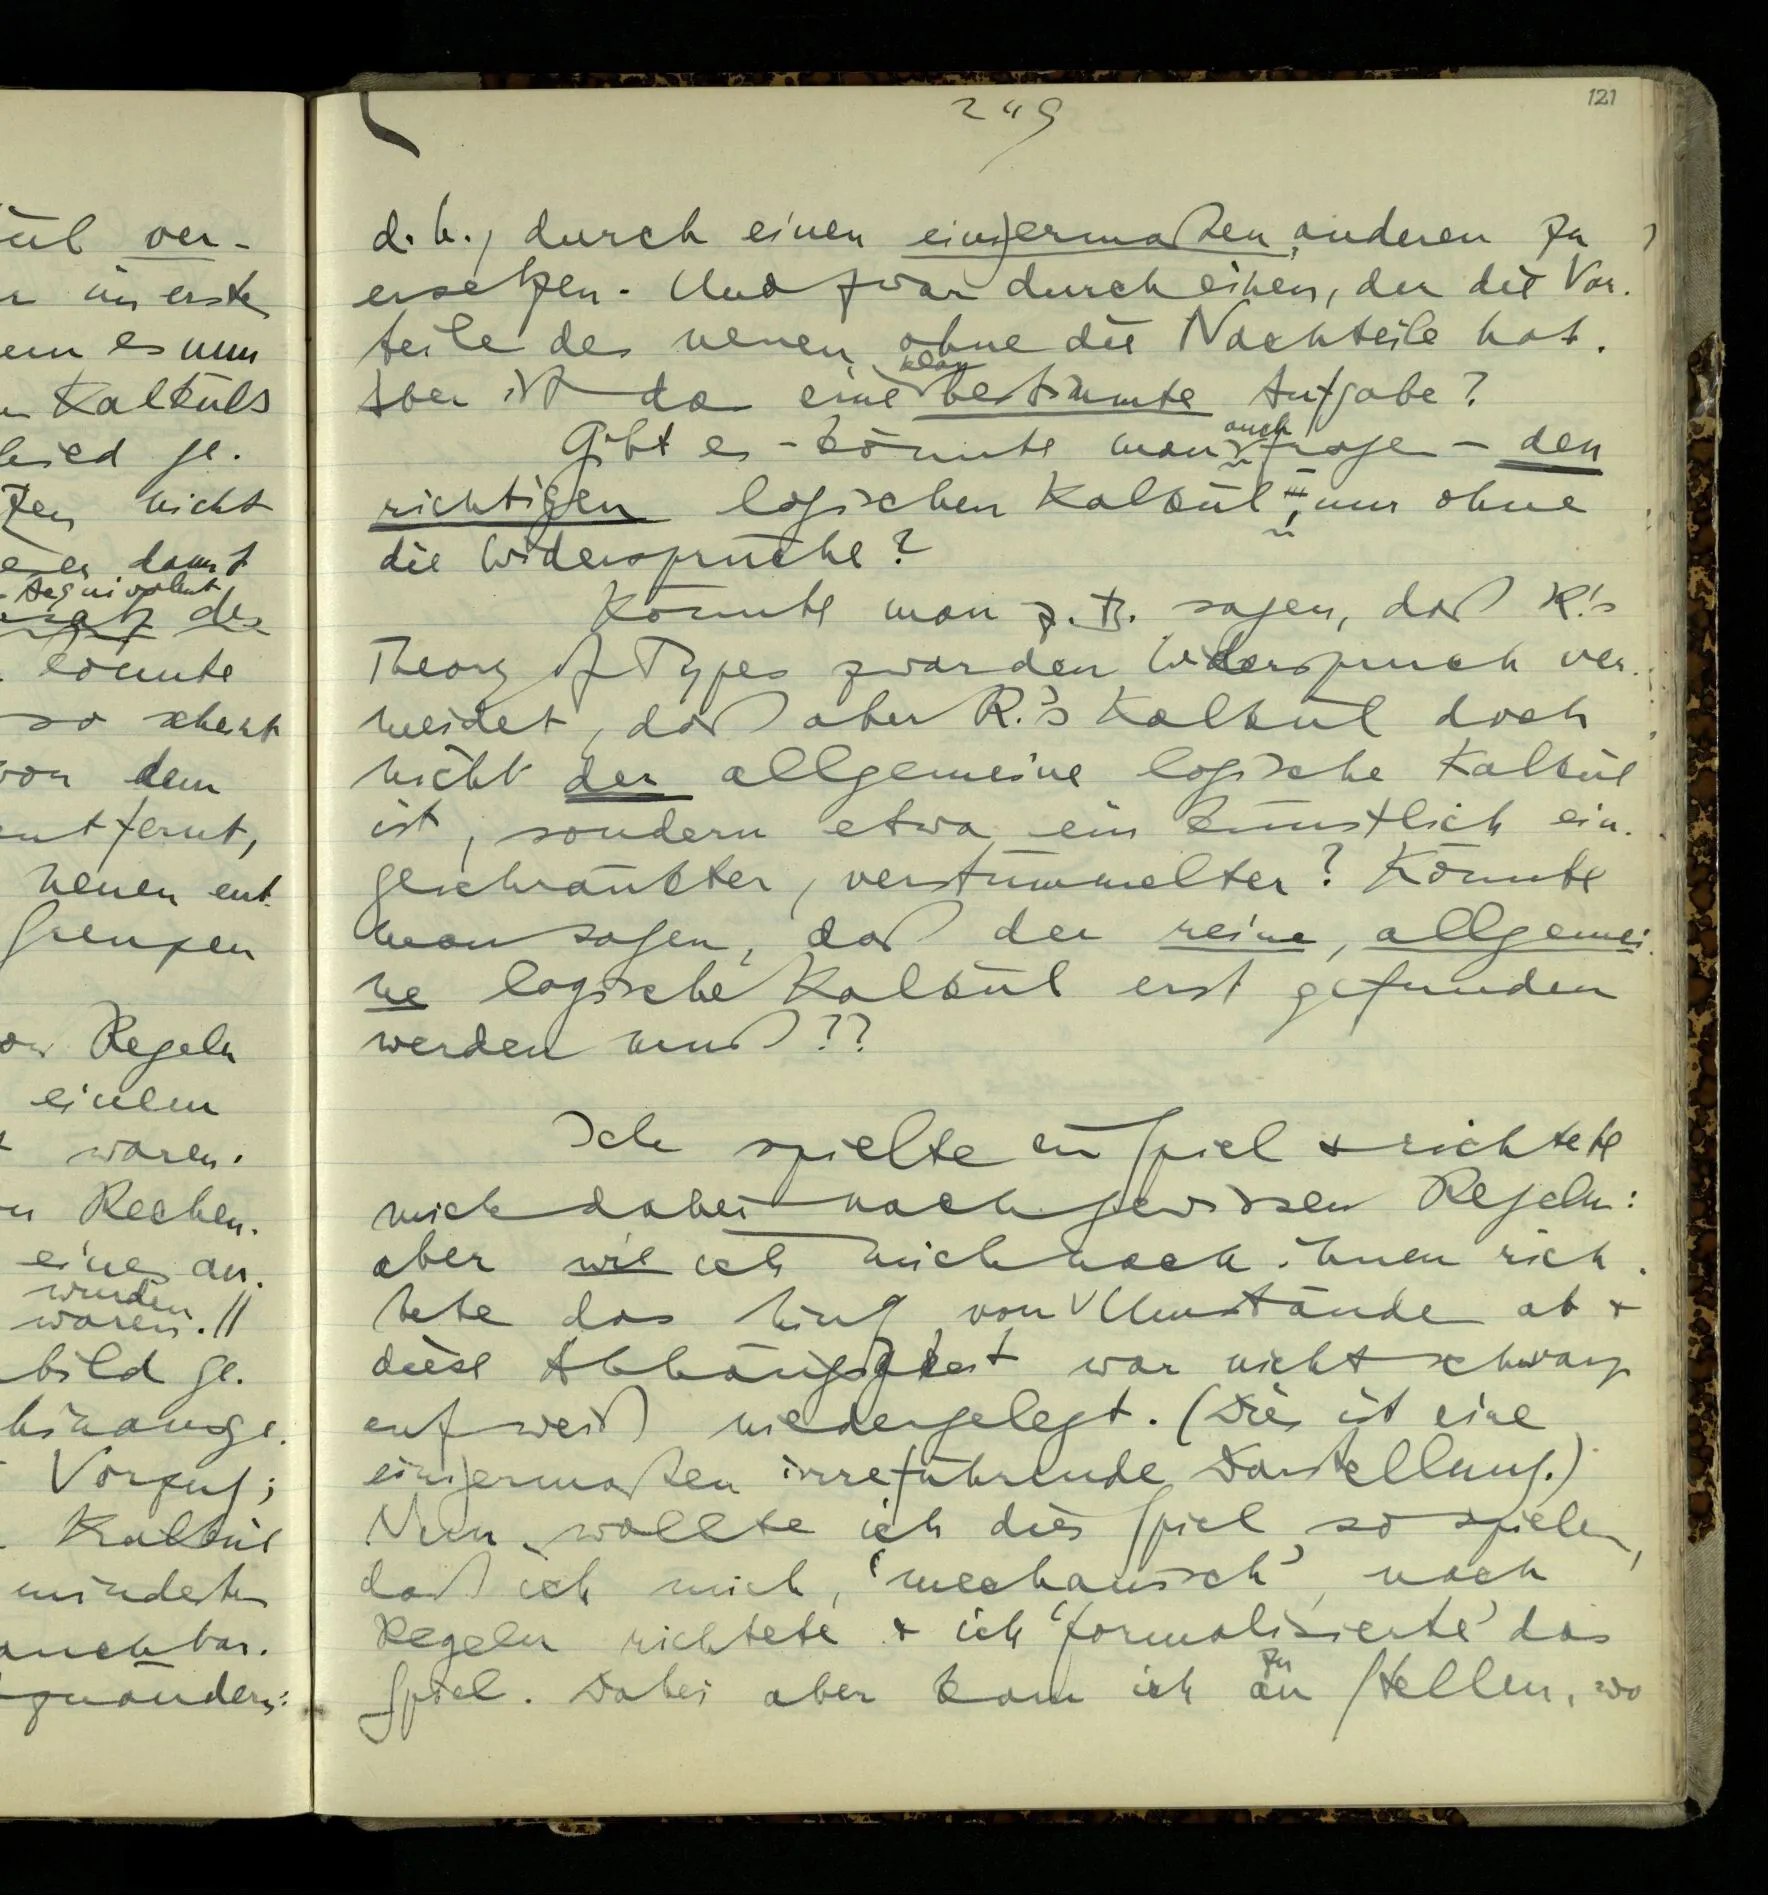 ül ver-
im erste
em es nun
Kalküls
hied ge-
zen nicht
er damit
Aequivalent
satz des
könnte
so scheint
von dem
entfernt,
neuen ent-
Grenzen
Regeln
einem
waren.
Rechen-
eines an-
wurden
waren. //
bild ge-
hinausge-
Vorzug;
Kalkül
mindesten
auchbar.
zuändern:
249
121
d.h., durch einen einigermaßen anderen zu
ersetzen. Und zwar durch einen, der die Vor-
teile des neuen, ohne die Nachteile hat.
klar
Aber ist das eine bestimmte Aufgabe?
auch
Gibt es – könnte man fragen – den
richtigen logischen Kalkül, nur ohne
die Widersprüche?
Könnte man z.B. sagen, daß R.'s
Theory of Types zwar den Widerspruch ver-
meidet, daß aber R.'s Kalkül doch
nicht der allgemeine logische Kalkül
ist, sondern etwa ein künstlich ein-
geschränkter, verstümmelter? Könnte
man sagen, daß der reine, allgemei-
ne logische Kalkül erst gefunden
werden muß??
Ich spielte ein Spiel & richtete
mich dabei nach gewissen Regeln:
aber wie ich mich nach ihnen rich-
tete das hing von Umstände ab &
diese Abhängigkeit war nicht schwarz
auf weiß niedergelegt. (Dies ist eine
einigermaßen irreführende Darstellung.)
Nun wollte ich dies Spiel so spielen,
daß ich mich, 'mechanisch', nach
Regeln richtete & ich 'formalisierte' das
zu
Spiel. Dabei aber kam ich an Stellen, wo